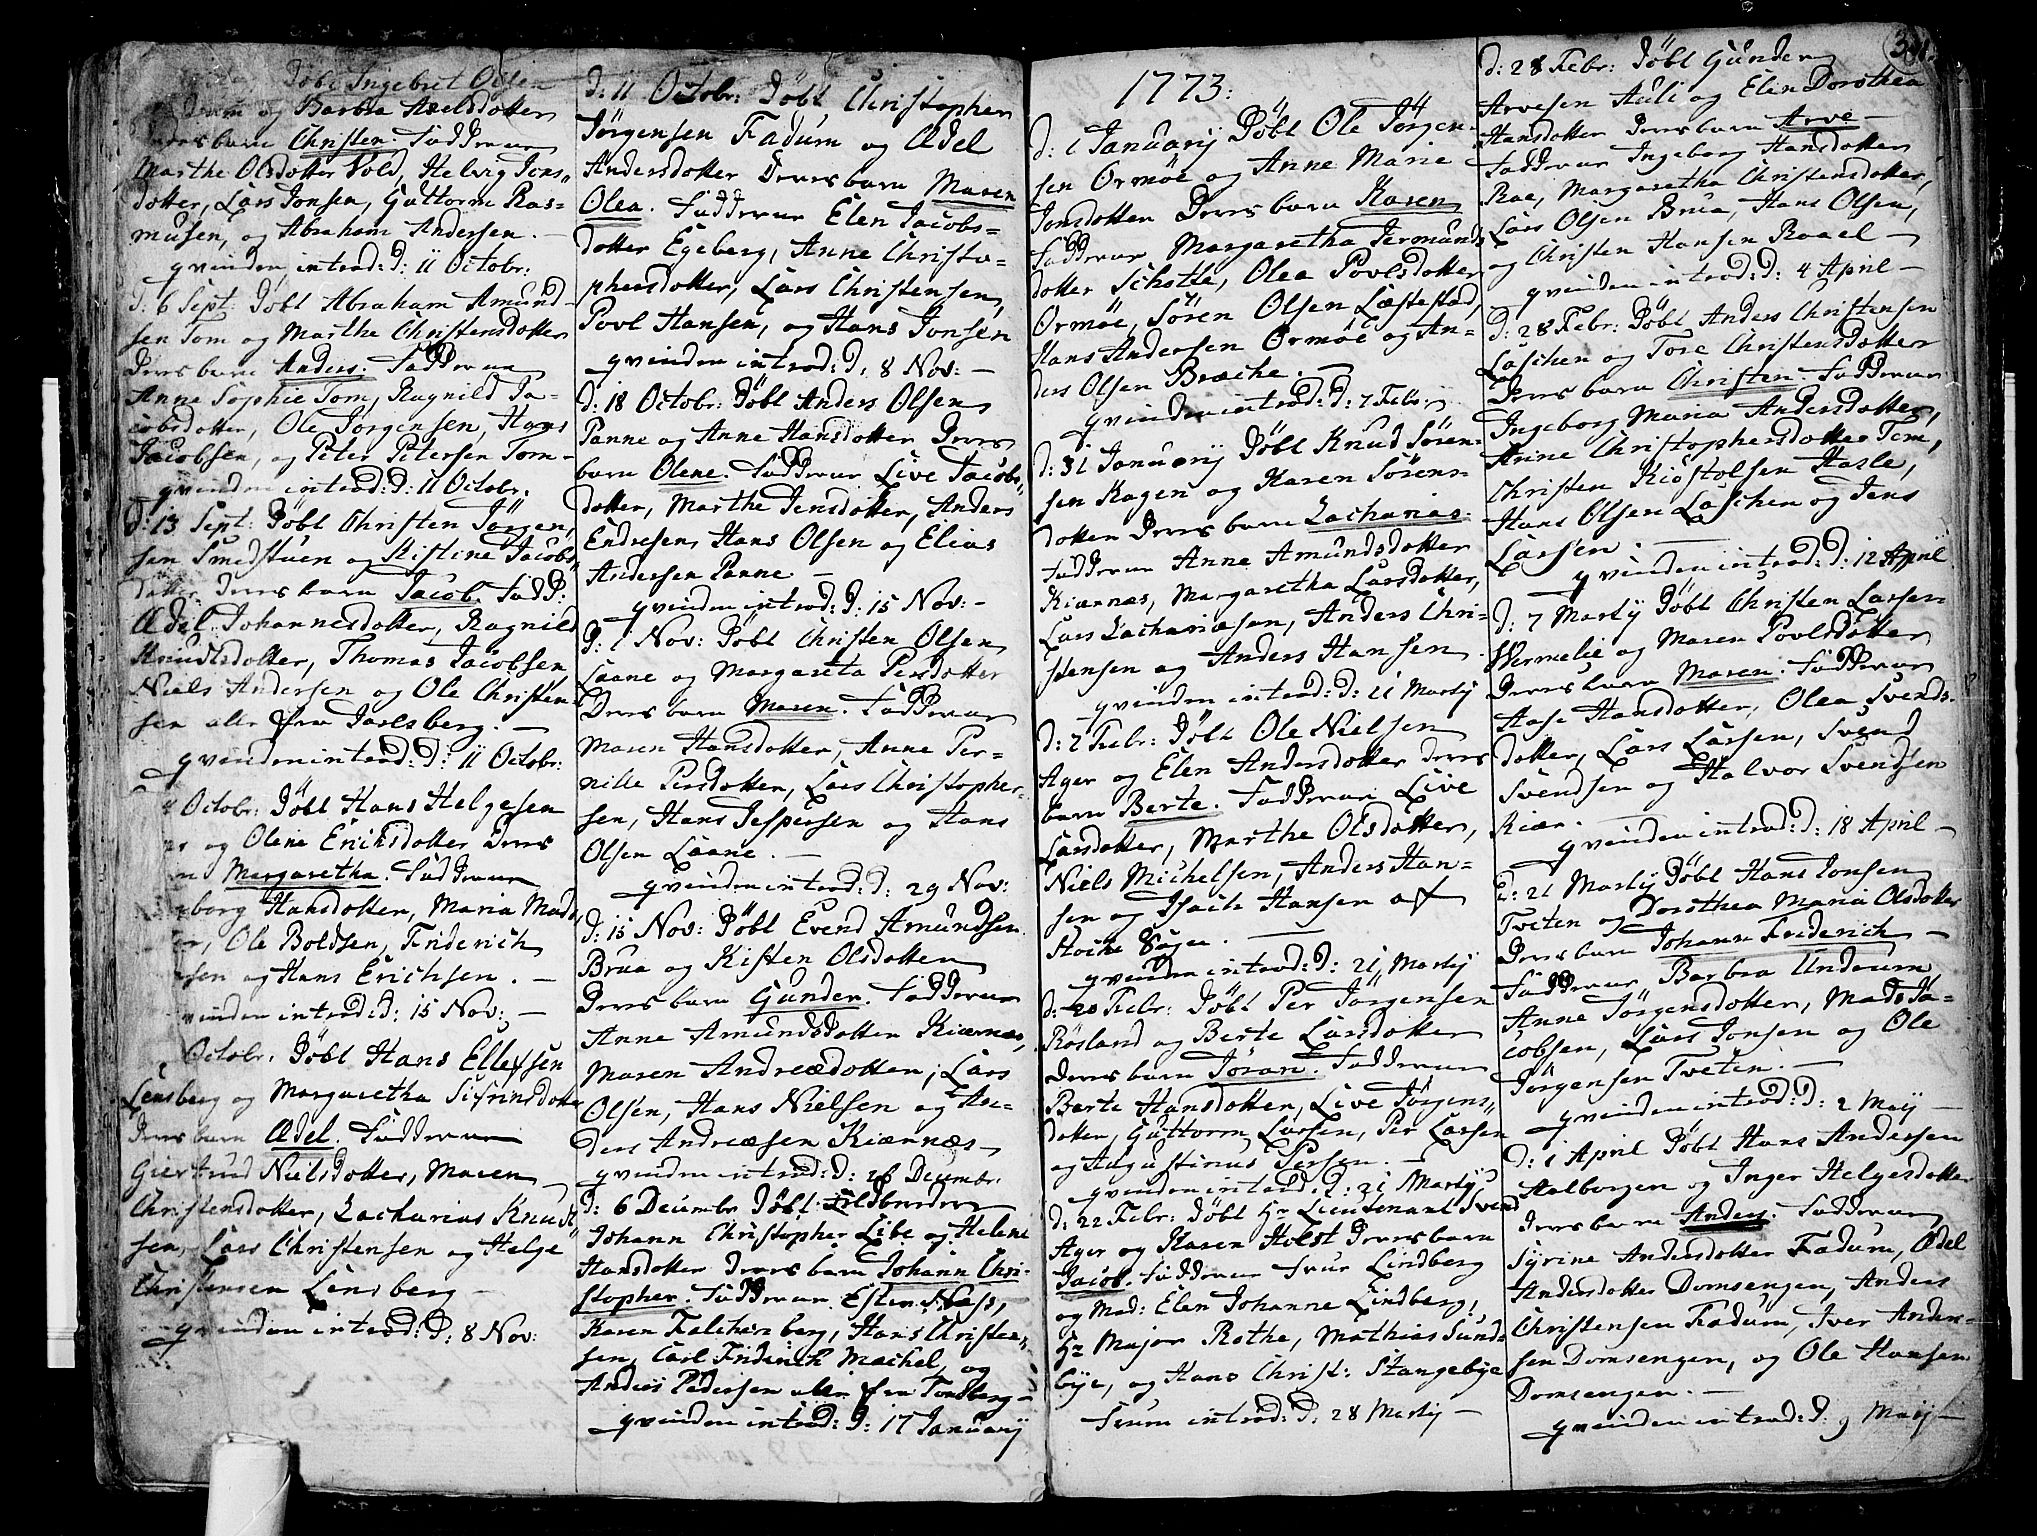 Döbt Ingebret Olsen
Drum og Barbra Axelsdotter
Deres barn Christen. Fadderne
Marthe Olsdotter Vold, Helvig Jens„
dotter, Lars Jonsen, Guttorm Ras=
musen, og Abraham Andersen. —
qvinden introd: D: 11 Octobr:
D: 6 Sept: Döbt Abraham Amund-
sen Tom og Marthe Christensdotter
Deres barn Anders. Fadderne
Anne Sophie Tom, Ragnild Ja-
cobsdotter, Ole Jørgensen, Hans
Jacobsen, og Peter Petersen Tom-
qvinden introd: D: 11 Octobr:
D: 13 Sept: Döbt Christen Jörgen
sen Smedstuen og Kistine Jacobs„
dotter Deres barn Jacob. Fadd:
Ædel Johannesdotter, Ragnild
Knudsdotter, Thomas Jacobsen
Niels Andersen og Ole Christen-
sen alle fra Jarlsberg. —
qvinden introd: D: 11 Octobr:
4 Octobr: Döbt Hans Helgesen
og Olene Erichsdotter Deres
Margaretha. Fadderne
borg Hansdotter, Maria Mads„
Ole Boldsen, Friderich
sen og Hans Erichsen. —
qvinden introd: D: 15 Nov: —
Octobr: Döbt Hans Ellefsen
Lensberg og Margaretha Sifrindsdotter
Deres barn Ædel. Fadderne
Giertrud Nielsdotter, Maren
Christensdotter, Zacharias Knud
sen, Lars Christensen og Helge
Christensen Lensberg —
qvinden introd: D: 8 Nov:
D: 11 Octobr: Döbt Christopher
Jørgensen Fadum og Ædel
Andersdotter Deres barn Maren
Olea. Fadderne Elen Jacobs=
dotter Egeberg, Anne Christo=
phersdotter, Lars Christensen,
Povl Hansen, og Hans Jonsen
qvinden introd: D: 8 Nov: —
D: 18 Octobr: Döbt Anders Olsen
Panne og Anne Hansdotter Deres
barn Olene. Fadderne Live Jacobs„
dotter, Marthe Jensdotter, Anders
Endresen, Hans Olsen og Elias
Andersen Panne —
qvinden introd: D: 15 Nov: —
D: 1 Nov: Döbt Christen Olsen
Laane og Margareta Persdotter
Deres barn Maren. Fadderne
Maren Hansdotter, Anne Per-
nille Persdotter, Lars Christopher-
sen, Hans Jespersen og Hans
Olsen Laane. —
qvinden introd: D: 29 Nov:
D: 15 Nov: Döbt Evend Amundsen
Brua og Kisten Olsdotter
Deres barn Gunder. Fadderne
Anne Amundsdotter Kiærnæs,
Maren Andreædotter, Lars
Olsen, Hans Nielsen og An-
ders Andreæsen Kiærnæs —
qvinden introd: D: 26 Decembr.
D: 6 Decembr Döbt
Johann Christopher Libe og Helene
Hansdotter Deres barn Johann Chri-
stopher. Fadderne Esten Næss,
Karen Falchenberg, Hans Christen„
sen, Carl Friderich Machel, og
Anders Pedersen alle fra Tønsberg —
qvinden introd: D: 17 Januarij
1773:
D: 1 Januarij Döbt Ole Jörgen-
sen Ormöe og Anne Marie
Jonsdotter Deres barn Karen
Fadderne Margaretha Jermunds
dotter Schotte, Olea Povlsdotter
Ormöe, Sören Olsen Læstestad,
Hans Andersen Ormöe og An=
ders Olsen Bræche. —
qvinden introd: D: 7 Febr:
D: 31 Januarij Döbt Knud Sören-
sen Hagen og Karen Sörens-
dotter Deres barn Zacharias.
Fadderne Anne Amundsdotter
Kiærnæs, Margaretha Larsdotter,
Lars Zachariæsen, Anders Chri-
stensen og Anders Hansen
qvinden introd: D: 21 Martij
D: 7 Febr: Döbt Ole Nielsen
Ager og Elen Andersdotter Deres
barn Berte. Fadderne Live
Larsdotter, Marthe Olsdotter,
Niels Michelsen, Anders Han-
sen og Isach Hansen af
Hoche Sogn. —
qvinden introd: D: 21 Martij
D: 20 Febr: Döbt Per Jörgensen
Rösland og Berte Larsdotter
Deres barn Jöran. Fadderne
Berte Hansdotter, Live Jörgens„
dotter, Guttorm Larsen, Per Larsen
og Augustinus Persen. —
qvinden introd: D: 21 Martij
D: 22 Febr: Döbt Hr Lieutenant Svend
Ager og Karen Holst Deres barn
Jacob. Fadderne Frue Lindberg
og Mad: Elen Johanne Lindberg,
Hr Major Rothe, Mathias Sund-
bye, og Hans Christ: Stangebye
Fruen introd: D: 28 Martij —
D: 28 Febr: Döbt Gunder
Arvesen Auli og Elen Dorothea
Hansdotter Deres barn Arve —
Fadderne Ingeborg Hansdotter
Roe, Margaretha Christensdotter,
Lars Olsen Brua, Hans Olsen,
og Christen Hansen Roael —
qvinden introd: D: 4 April —
D: 28 Febr: Döbt Anders Christensen
Laschen og Tore Christensdotter
Deres barn Christen. Fadderne
Ingeborg Maria Andersdotter,
Anne Christophersdotter Tem,
Christen Kiöstolsen Hasle,
Hans Olsen Laschen og Jens
Larsen. —
qvinden introd: D: 12 April
D: 7 Martij Döbt Christen Larsen
Vermelie og Maren Povlsdotter
Deres barn Maren. Fadderne
Aase Hansdotter, Olea Svends-
dotter, Lars Larsen, Svend
Svendsen og Halvor Svendsen
Kiær. —
qvinden introd: D: 18 April —
D: 21 Martij Döbt Hans Jonsen
Tveten og Dorothea Maria Olsdotter
Deres barn Johann Friderich —
Fadderne Barbra Undrum,
Anne Jörgensdotter, Mads Ja=
cobsen, Lars Jonsen og Ole
Jörgensen Tveten. —
qvinden introd: D: 2 Maij —
D: 1 April Döbt Hans Andersen
Aalborgen og Inger Helgesdotter
Deres barn Anders. Fadderne
Syrine Andersdotter Fadum, Ædel
Andersdotter Domsengen, Anders
Christensen Fadum, Iver Ander-
sen Domsengen, og Ole Hansen
Domsengen. —
qvinden introd: D: 9 Maij —